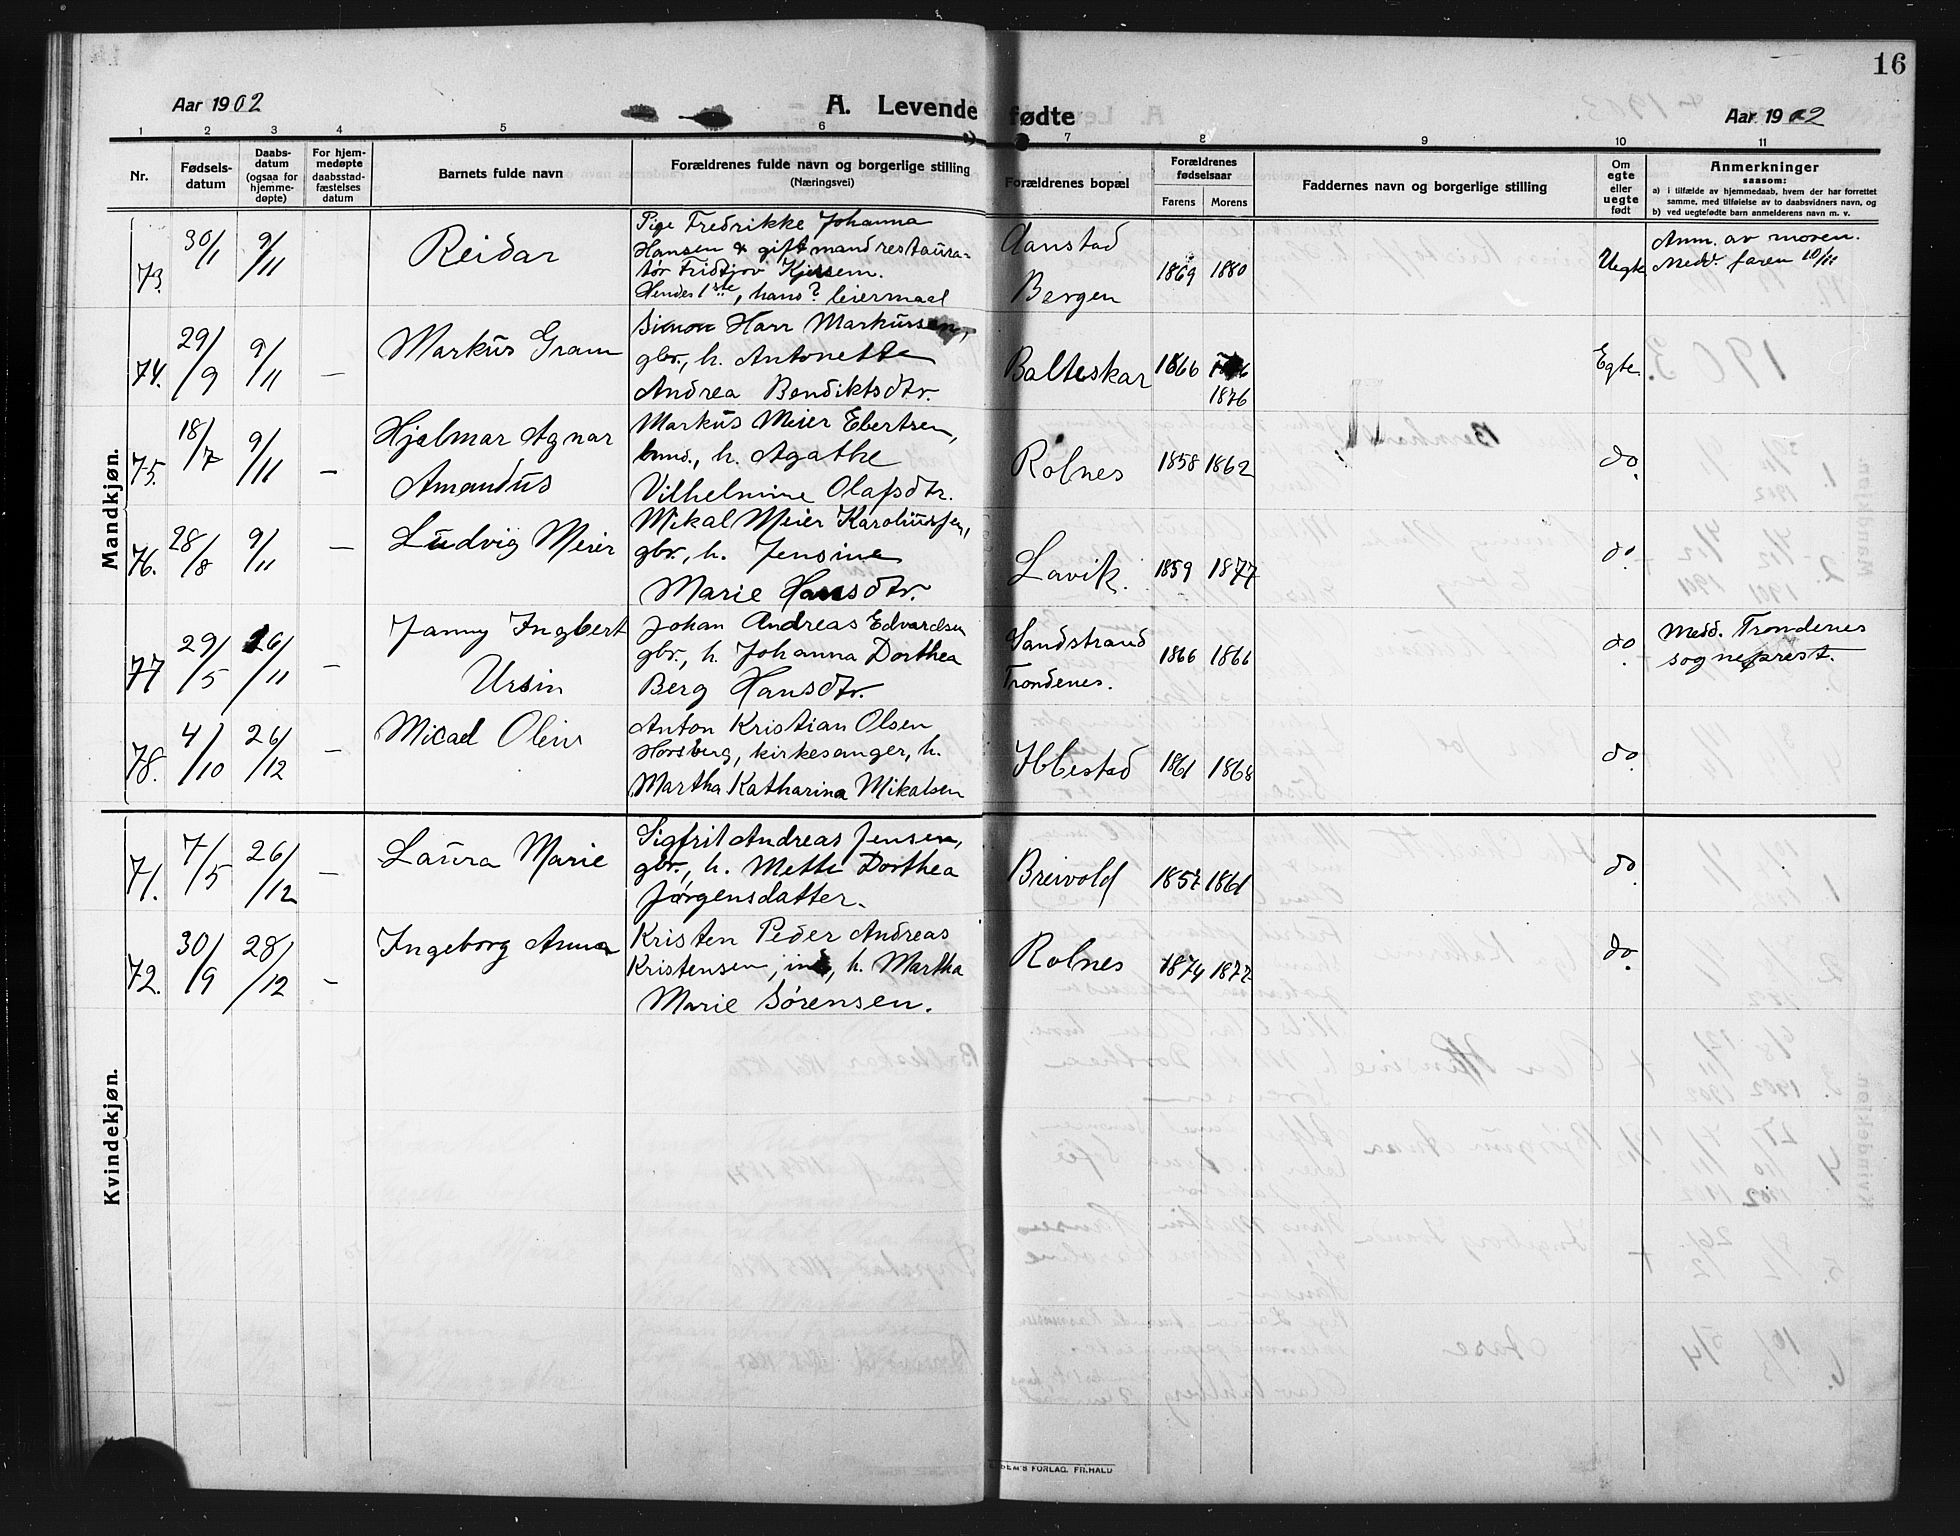 16
Aar 1902
A. Levende fødte
Aar 1902
1 2 3 4 5 6 7 8 9 10 11
Nr.
Fødsels-
datum
Daabs-
datum
(ogsaa for
hjemme-
døpte)
For hjem-
medøpte
daabsstad-
fæstelses
datum
Barnets fulde navn
Forældrenes fulde navn og borgerlige stilling
(Næringsvei)
Forældrenes bopæl
Forældrenes
fødselsaar
Farens Morens
Faddernes navn og borgerlige stilling
Om
egte
eller
uegte
født
Anmerkninger
saasom:
a) i tilfælde av hjemmedaab, hvem der har forrettet
samme, med tilføielse av to daabsvidners navn, og
b) ved uegtefødte barn anmelderens navn m. v.
Mandkjøn.
73. 30/1 9/11 Reidar
Pige Fredrikke Johanna
Hansen & gift mand restaura-
tør Fridtjov
Hendes 1ste, hans ? leiermaal
Aanstad
Bergen
1869 1880 Uegte
Anm. av moren.
Medd. faren 10/11
74. 29/9 9/11 — Markus Gram
Simon Harr Markussen,
gbr., h. Antonette
Andrea Bendiktsdtr.
Balteskar 1866
1876
Egte
75. 18/7 9/11 — Hjalmar Agnar
Amandus
Markus Meier Ebertsen,
h. Agathe
Vilhelmine Olafsdtr.
Rolnes 1858 1862 do.
76. 28/8 9/11 — Ludvig Meier
Mikal Meier Karoliussen,
gbr., h. Jensine
Marie Hansdtr.
Lavik. 1859 1877 do.
77 29/5 26/11 — Janny Ingbert
Ursin
Johan Andreas Edvardsen
gbr., h. Johanna Dorthea
Berg Hansdtr.
Sandstrand
Trondenes.
1866 1866 do.
Medd. Trondenes
sogneprest.
78. 4/10 26/12 — Micael Oleiv
Anton Kristian Olsen
Horsberg, kirkesanger, h.
Martha Katharina Mikalsen
Ibbestad 1861 1868 do.
Kvindekjøn.
71. 7/5 26/12 — Laura Marie
Sigfrit Andreas Jensen,
gbr., h. Mette Dorthea
Jørgensdatter.
Breivold 1857 1861 do.
72. 30/9 28/12 — Ingeborg Anna
Kristen Peder Andreas
Kristensen, ind., h. Martha
Marie Sørensen.
Rolnes 1874 1872 do.
SEM'S FORLAG. FR.HALD